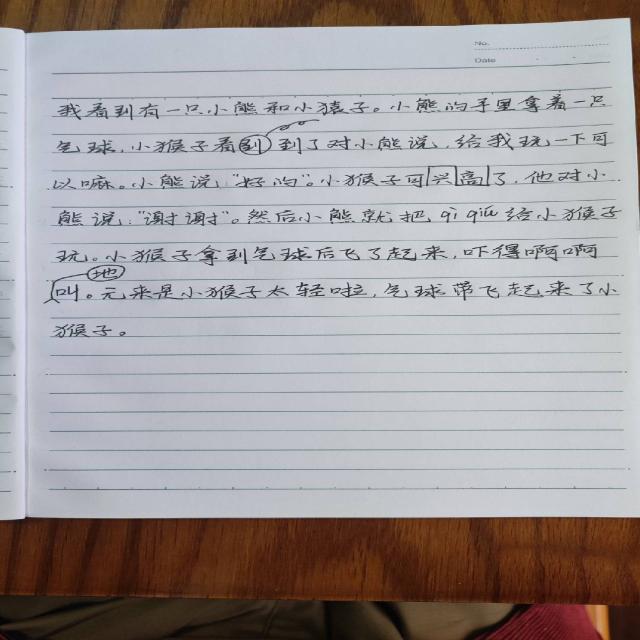 No.
Date
我看到有一只小熊和小猿子。小熊的手里拿着一只
气球，小猴子看到到了对小熊说，给我玩一下可
以嘛。小熊说：“好的”。小猴子可兴高了，他对小
熊说：“谢谢”。然后小熊就把qì qiú给小猴子
玩。小猴子拿到气球后飞了起来，吓得啊啊
地
叫。元来是小猴子太轻啦，气球带飞起来了小
猴子。